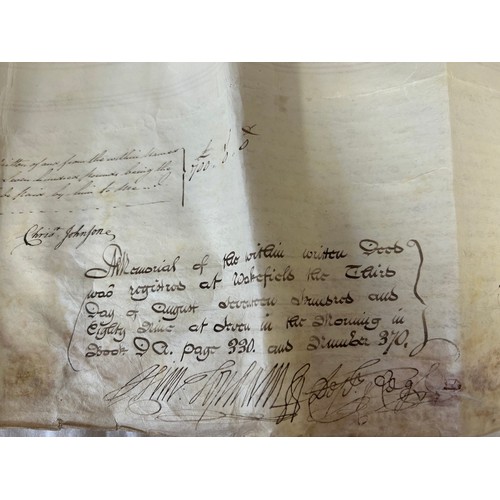 of me from the within named
hundred pounds being the
by him to me
£ s d
700. 0. 0
Chris.r Johnson
A Memorial of the within written Deed
was registred at Wakefield the Third
Day of August Seventeen Hundred and
Eighty Nine at Seven in the Morning in
Book D.A. page 330. and Number 370.